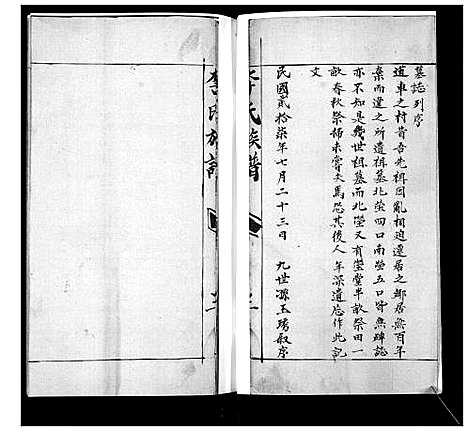 墓誌列序
道車之村昔吾先祖因亂相迫遷居之鄉居無百年
棄而遷之所遺祖墓北塋四口南塋五口皆無碑誌
亦不知是幾世祖墓而北塋又有塋堂半畝祭田一
畝春秋祭掃未嘗乏焉恐其後人年深遺忘作此記
文
民國貳拾柒年七月二十三日 九世源玉琇敘序
李氏族譜
李氏族譜